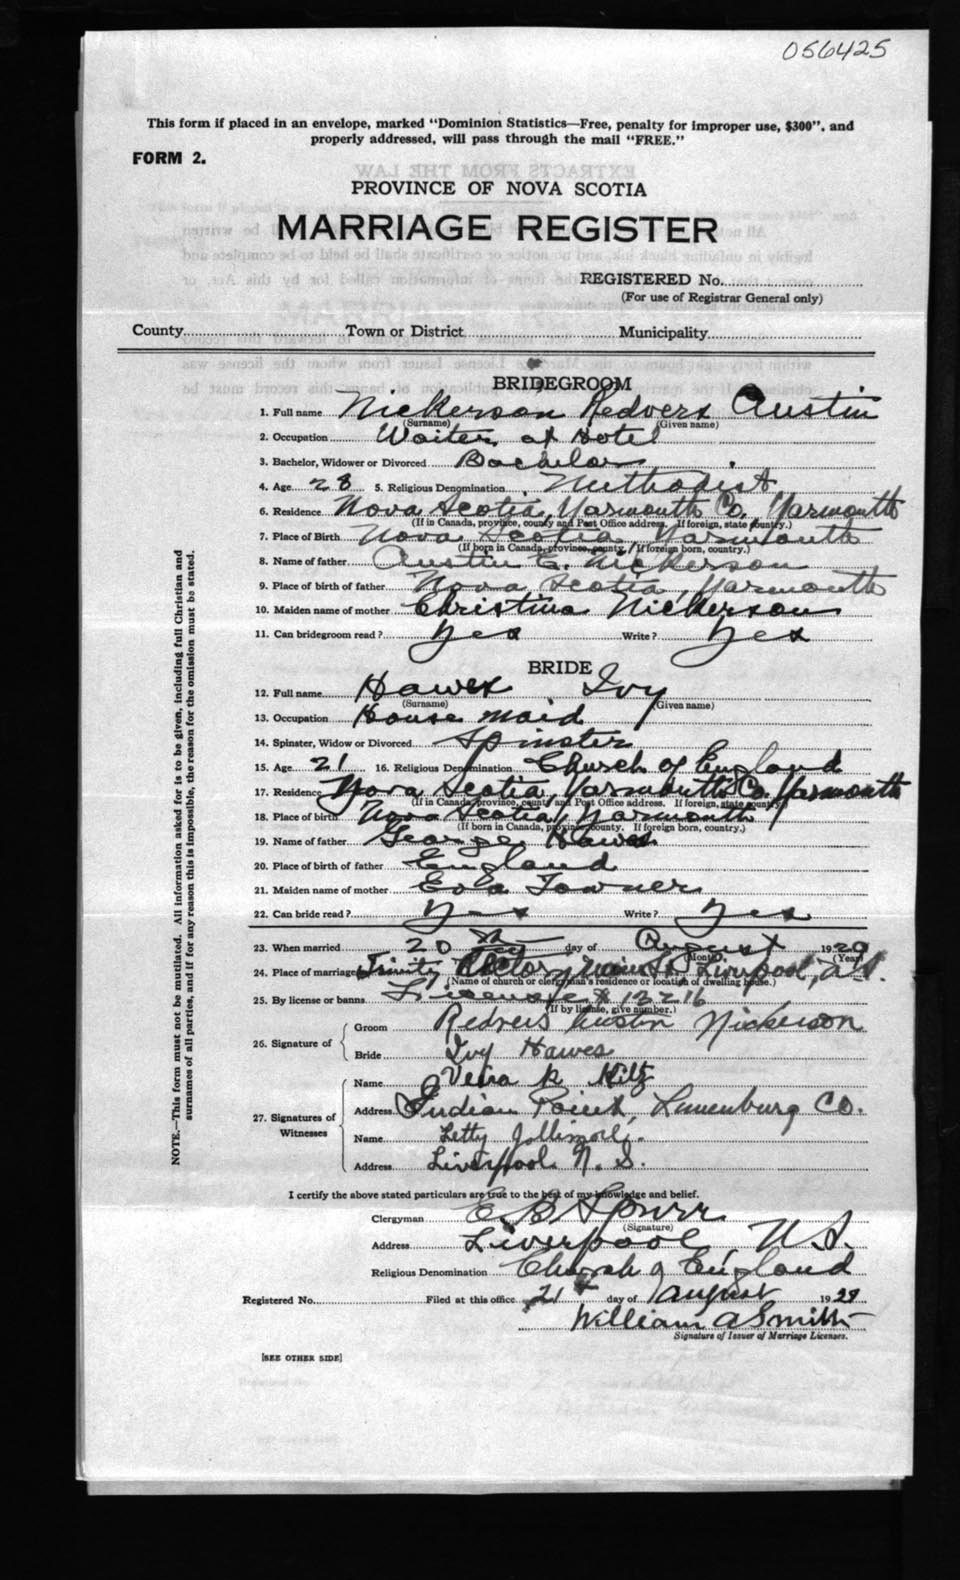 056425
This form if placed in an envelope, marked "Dominion Statistics—Free, penalty for improper use, $300". and
properly addressed, will pass through the mail "FREE."
FORM 2.
PROVINCE OF NOVA SCOTIA
MARRIAGE REGISTER
REGISTERED No.
(For use of Registrar General only)
County Town or District Municipality
BRIDEGROOM
1. Full name Nickerson Redvers Austin
(Surname) (Given name)
2. Occupation Waiter at Hotel
3. Bachelor, Widower or Divorced Bachelor
4. Age 28 5. Religious Denomination Methodist
6. Residence Nova Scotia, Yarmouth Co. Yarmouth
(If in Canada, province, county and Post Office address. If foreign, state country.)
7. Place of Birth Nova Scotia, Yarmouth
(If born in Canada, province, county. If foreign born, country.)
8. Name of father Austin E. Nickerson
9. Place of birth of father Nova Scotia, Yarmouth
10. Maiden name of mother Christina Nickerson
11. Can bridegroom read? Yes Write? Yes
BRIDE
12. Full name Hawes Ivy
(Surname) (Given name)
13. Occupation House maid
14. Spinster, Widow or Divorced Spinster
15. Age 21 16. Religious Denomination Church of England
17. Residence Nova Scotia, Yarmouth Co. Yarmouth
(If in Canada, province, county and Post Office address. If foreign, state country.)
18. Place of birth Nova Scotia, Yarmouth
(If born in Canada, province, county. If foreign born, country.)
19. Name of father George Hawes
20. Place of birth of father England
21. Maiden name of mother Towner
22. Can bride read? Yes Write? Yes
23. When married 20th day of August 1929
(Month) (Year)
24. Place of marriage Trinity Rectory, Main St. Liverpool, N.S.
(Name of church or clergyman's residence or location of dwelling house.)
25. By license or banns License # 12216
(If by license, give number.)
26. Signature of
Groom Redvers Austin Nickerson
Bride Ivy Hawes
27. Signatures of Witnesses
Name
Address Indian Point, Lunenburg Co.
Name Letty
Address Liverpool N. S.
I certify the above stated particulars are true to the best of my knowledge and belief.
Clergyman E. B. Spurr
(Signature)
Address Liverpool N.S.
Religious Denomination Church of England
Registered No. Filed at this office 21st day of August 1929
William A Smith
Signature of Issuer of Marriage Licenses.
[SEE OTHER SIDE]
NOTE.—This form must not be mutilated. All information asked for is to be given, including full Christian and
surnames of all parties, and if for any reason this is impossible, the reason for the omission must be stated.